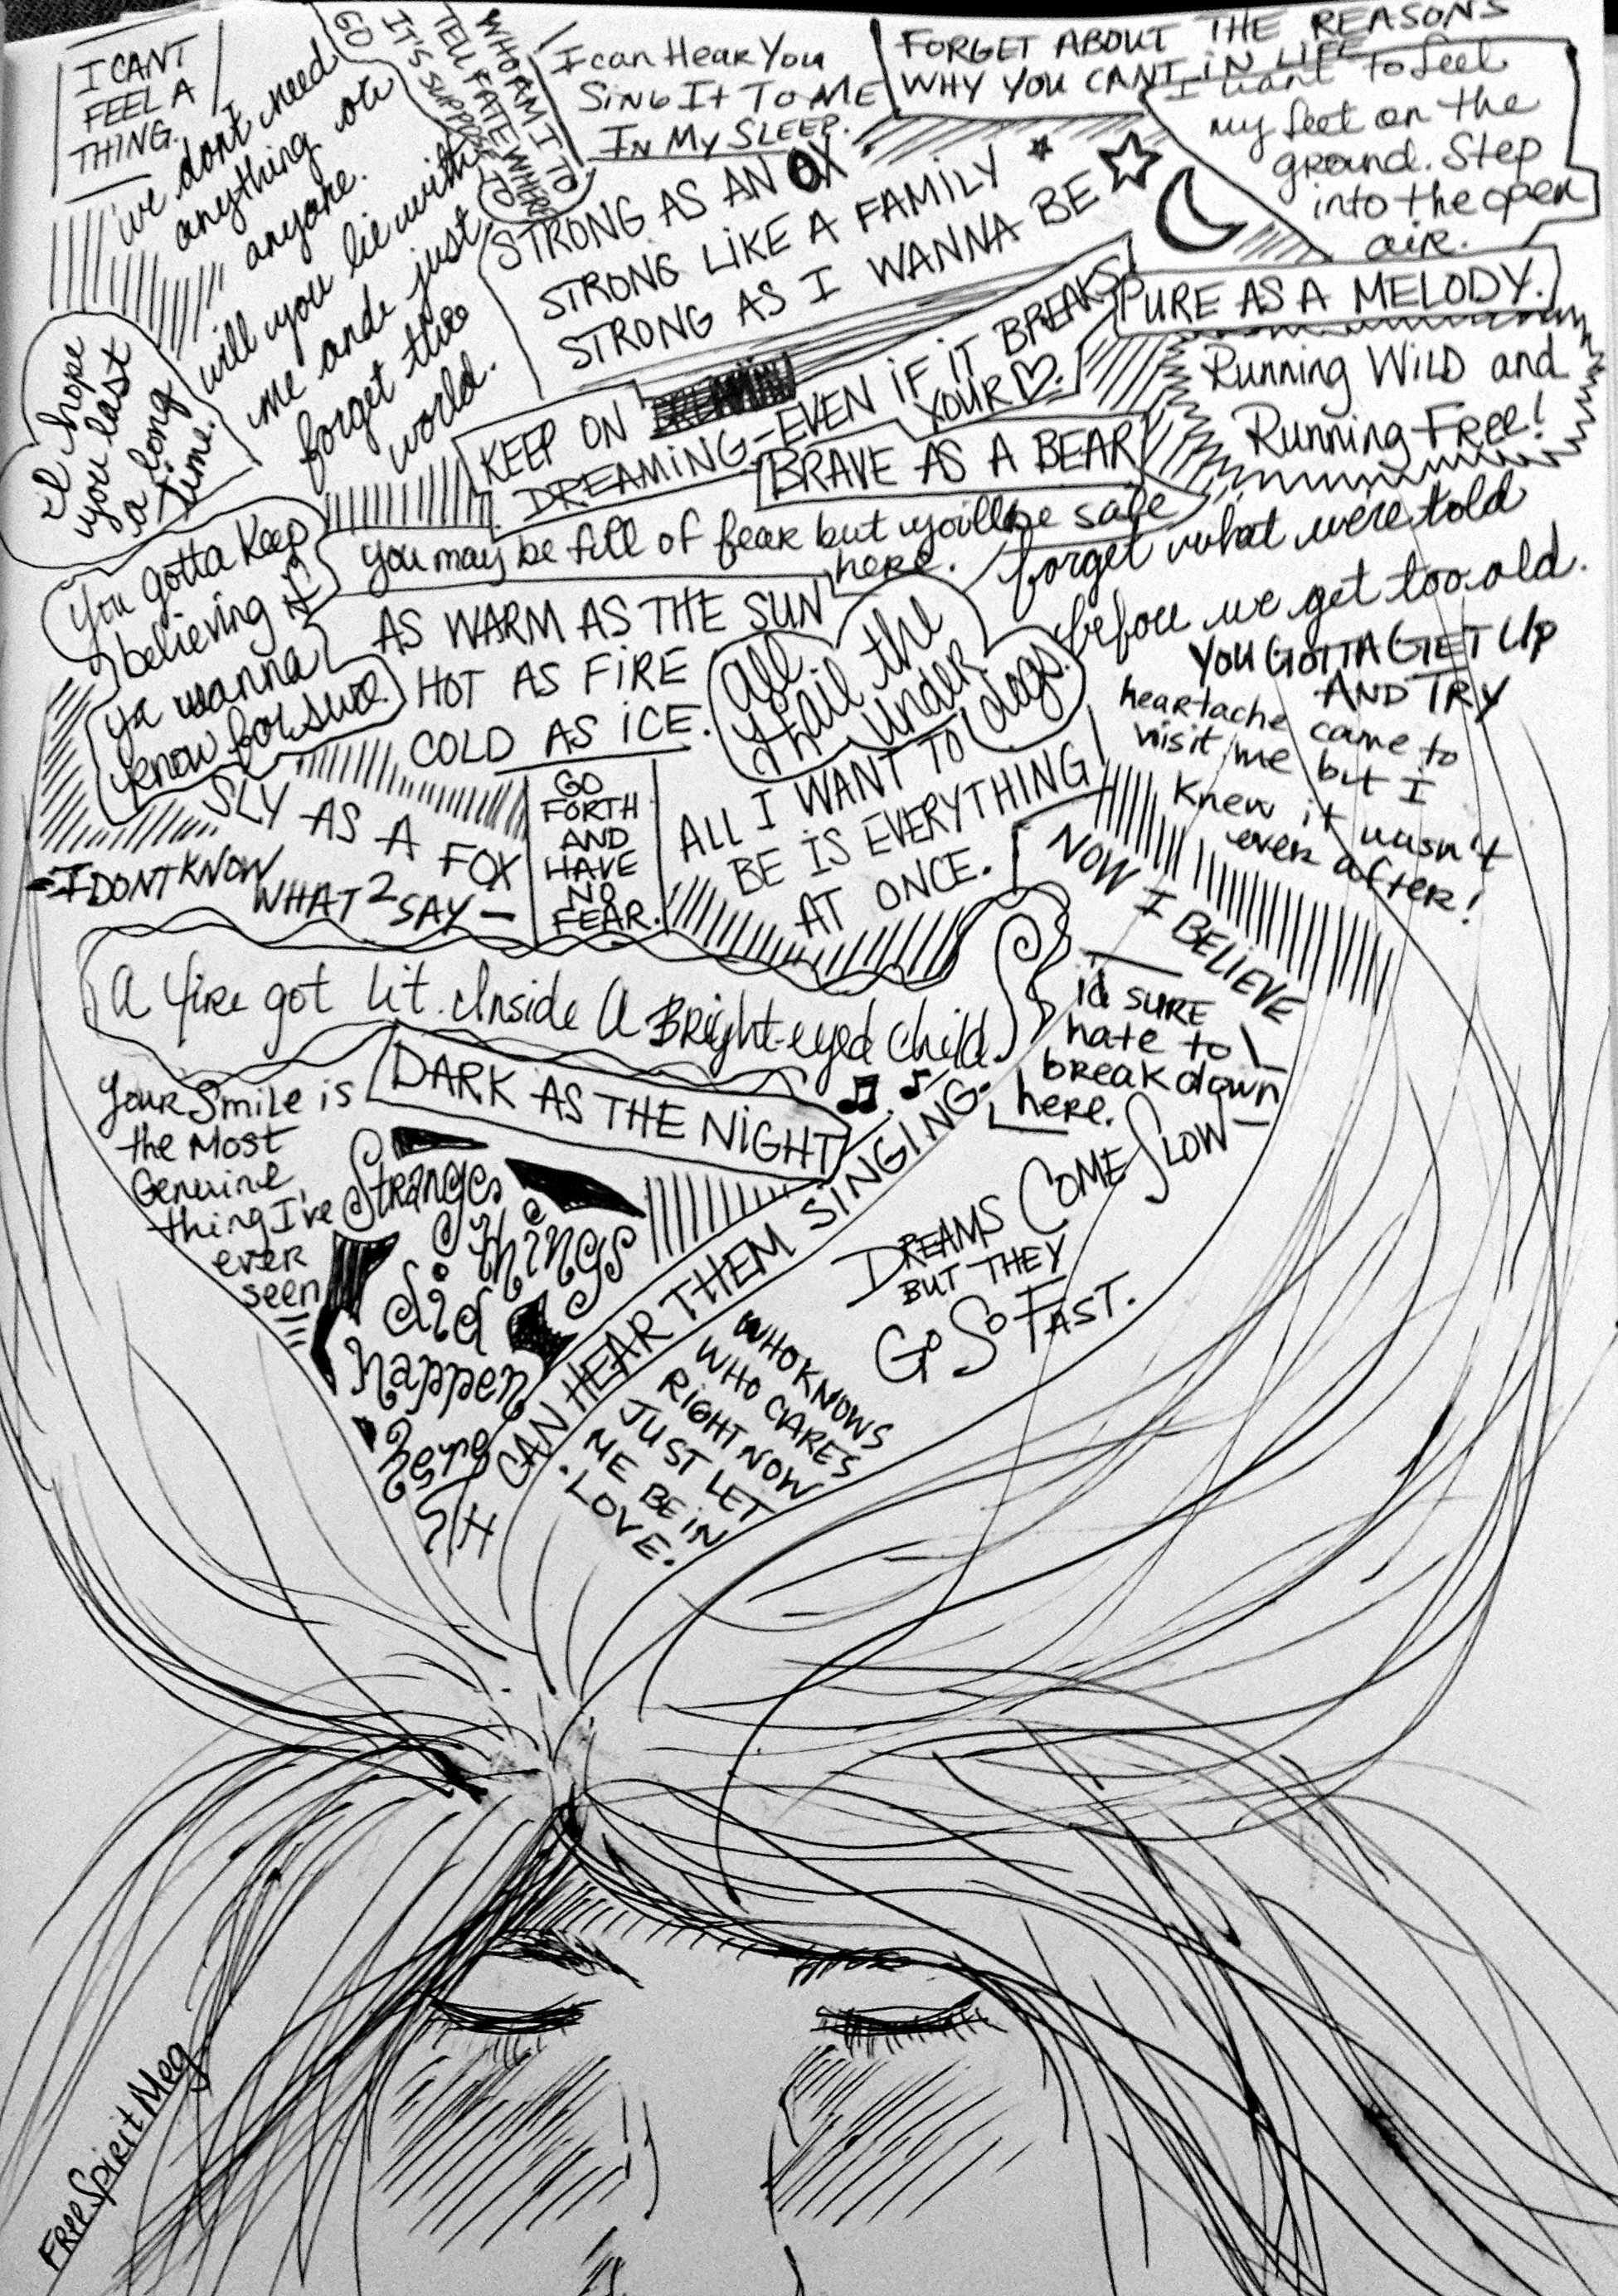 I CANT
FEEL A
THING.
we dont need
anything or
anyone.
will you lie with
me and just
forget the
world.
GO
IT'S SUPPOSE TO
TELL FATE WHERE
WHO AM I TO
I can Hear You
Sing It To ME
In My Sleep.
FORGET ABOUT THE REASONS
WHY YOU CANT IN LIFE
I want to feel
my feet on the
ground. Step
into the open
air.
STRONG AS AN OX
STRONG LIKE A FAMILY
STRONG AS I WANNA BE
PURE AS A MELODY.
Running WilD and
Running Free!
I hope
you last
a long
time.
KEEP ON
DREAMING-EVEN IF IT BREAKS
YOUR
BRAVE AS A BEAR
you may be full of fear but you'll be safe
here.
forget what we're told
before we get too old.
You gotta keep
believing if
ya wanna
know for sure.
AS WARM AS THE SUN
HOT AS FIRE
COLD AS ICE.
all
Hail the
under
dogs.
YOU GOTTA GET Up
AND TRY
heartache came to
visit me but I
knew it wasn't
ever after!
SLY AS A FOX
-I DONT KNOW
WHAT 2 SAY-
GO
FORTH
AND
HAVE
NO
FEAR.
ALL I WANT TO
BE IS EVERYTHING
AT ONCE.
NOW I BELIEVE
A fire got lit Inside A Bright-eyed child.
id SURE
hate to
break down
here.
DARK AS THE NIGHT
Your Smile is
the Most
Genuine
thing I've
ever
seen
Strange
things
did
happen
here
I CAN HEAR THEM SINGING.
DREAMS COME SLOW-
BUT THEY
GO SO FAST.
WHO KNOWS
WHO CARES
RIGHT NOW
JUST LET
ME BE IN
.LOVE.
Free Spirit Meg